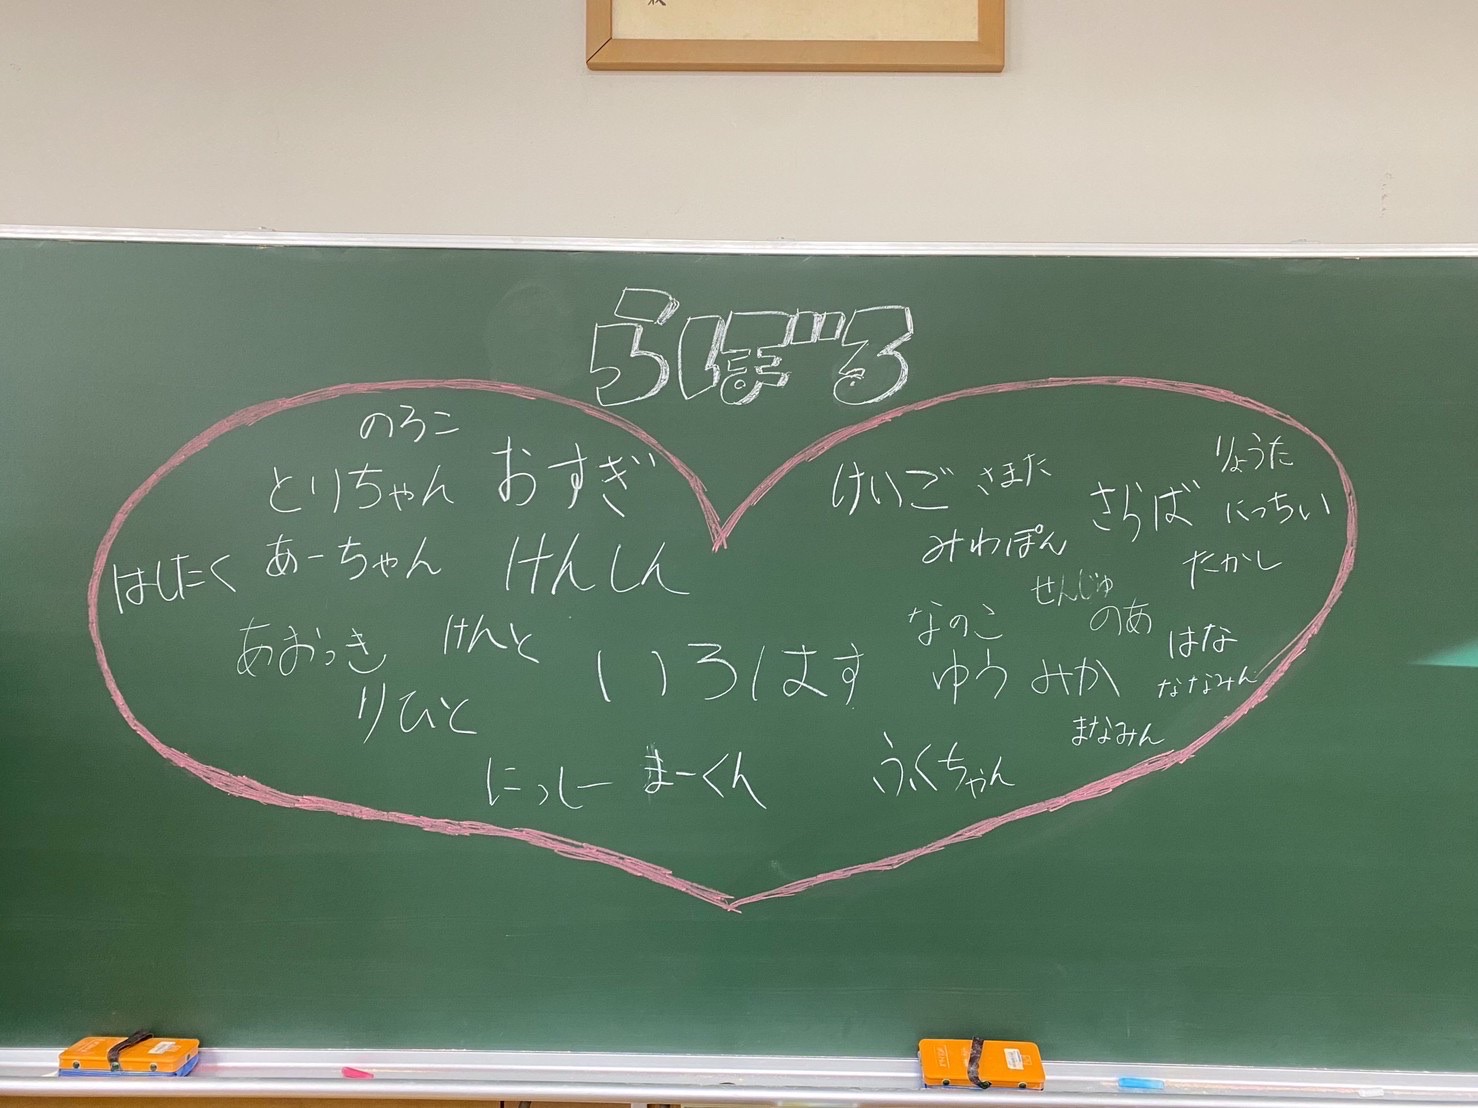 らぼる
のろこ
とりちゃん
おすぎ
はしたく
あーちゃん
けんしん
あおっき
けんと
りひと
いろはす
にっしー
まーくん
けいご
さまた
りょうた
さらば
にっちい
みわぽん
たかし
せんじゅ
なのこ
のあ
はな
ゆう
みか
ななみん
まなみん
ふくちゃん